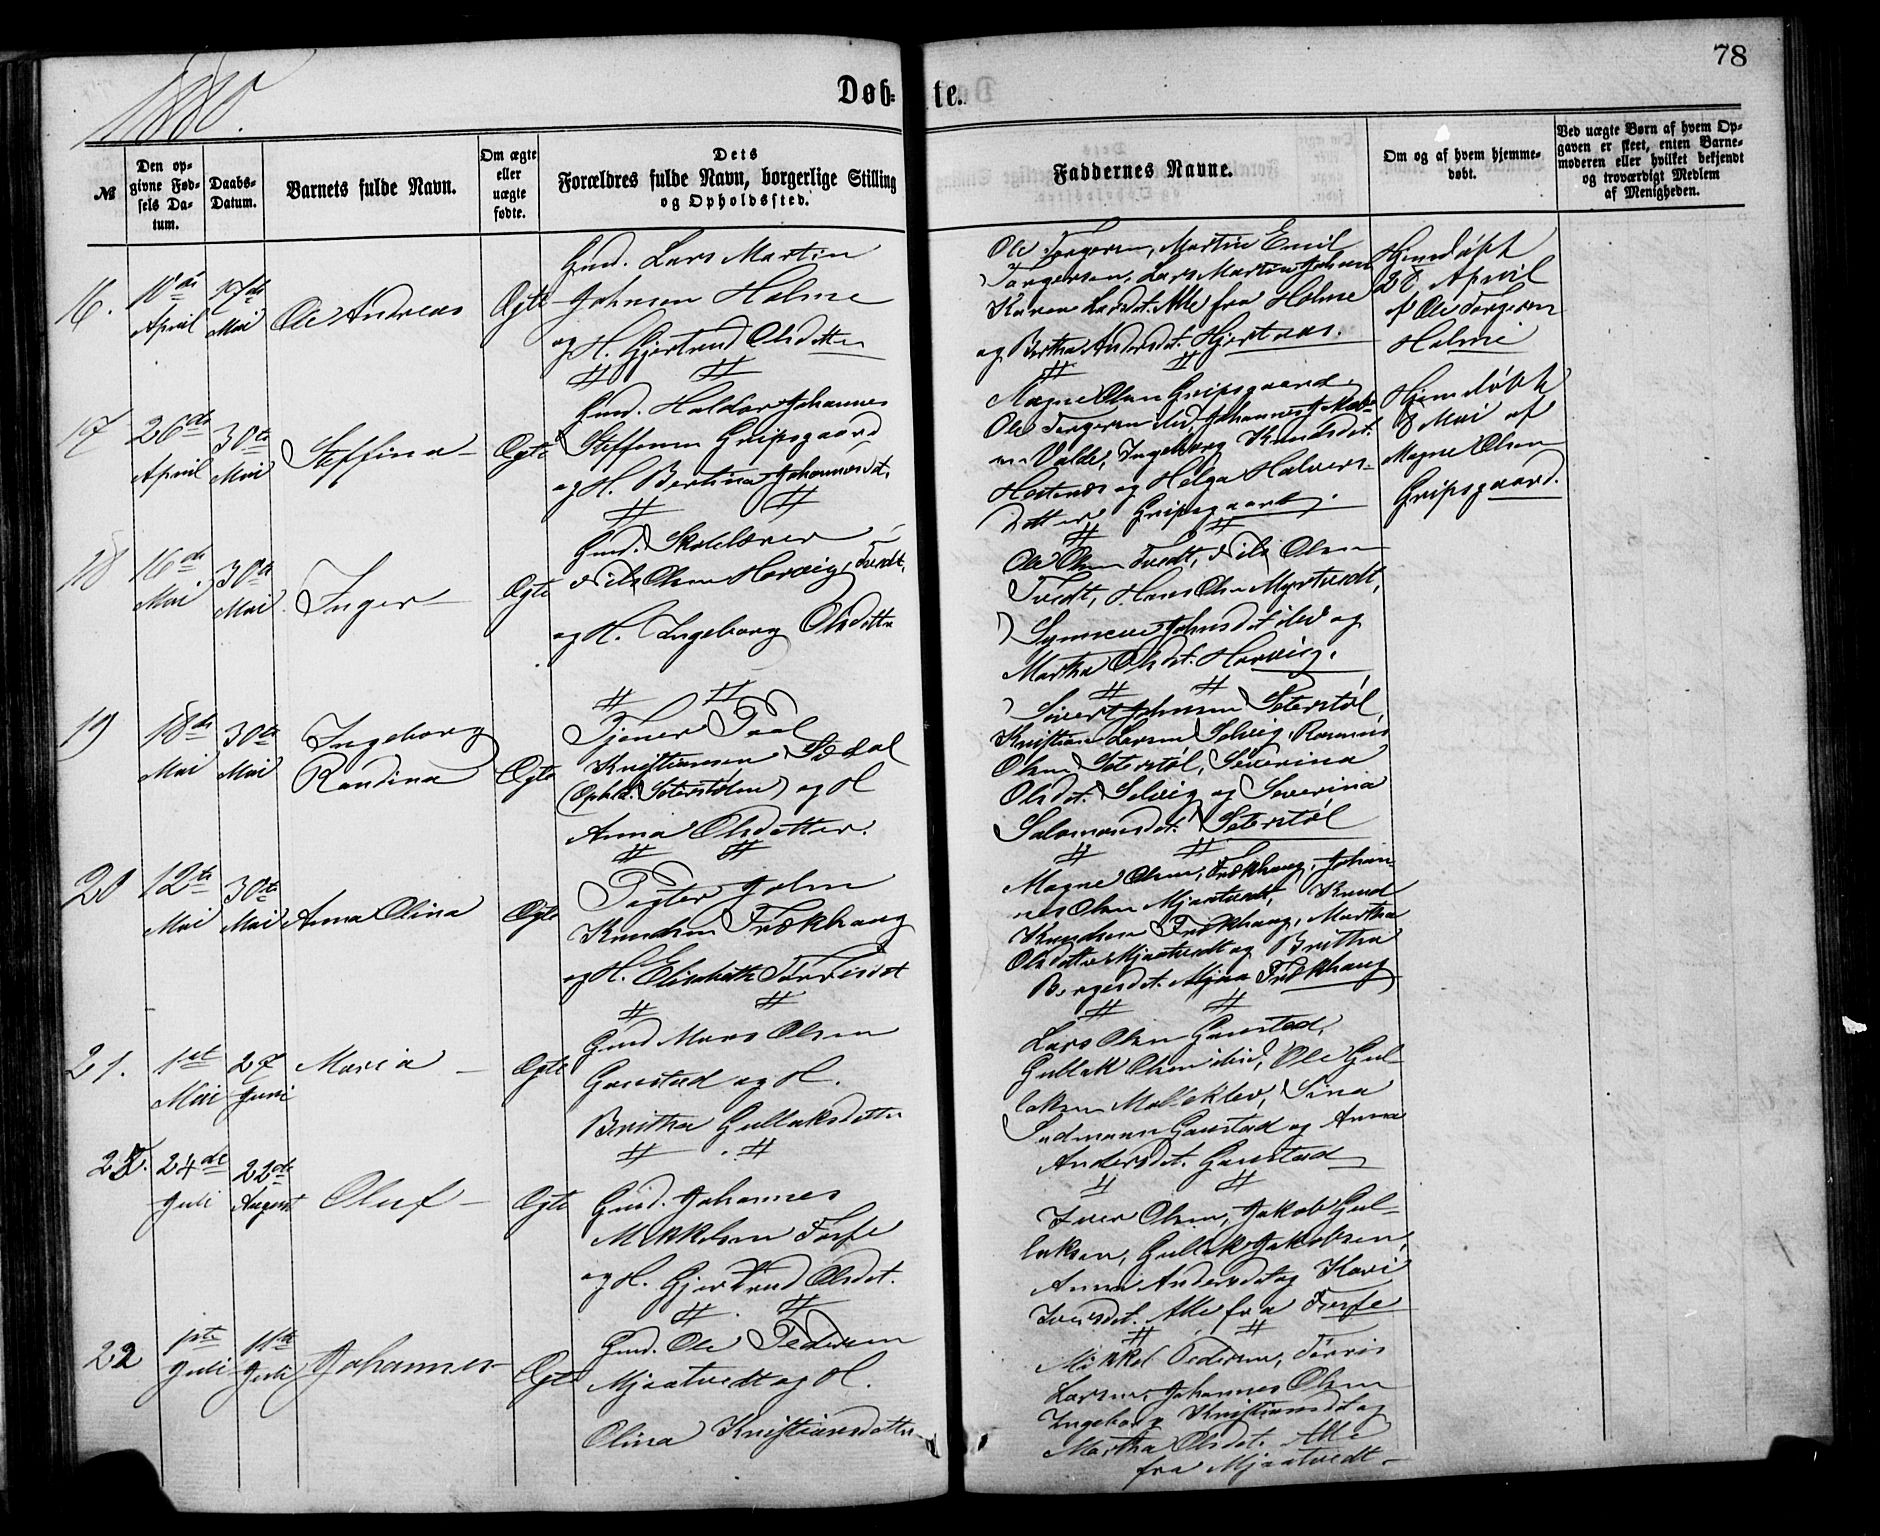 78
1880.
Døb-
te.
№
Den op-
givne Fød-
sels Da-
tum.
Daabs-
Datum.
Barnets fulde Navn.
Om ægte
eller
uægte
fødte.
Dets
Forældres fulde Navn, borgerlige Stilling
og Opholdssted.
Faddernes Navne.
Om og af hvem hjemme-
døbt.
Ved uægte Børn af hvem Op-
gaven er skeet, enten Barne-
moderen eller hvilket bekjendt
og troværdigt Medlem
af Menigheden.
16.
10de
April
17de
Mai
Ole Andreas
Ægte
Gmd. Lars Martin
Johnsen Holme
og H. Gjertrud Olsdatter
Ole Torgersen, Martin Emil
Torgersen, Lars Martin Johnsen
Karen Larsdat. Alle fra Holme
og Bertha Andersdat. Hjertaas.
Hjemdøbt
28 April
af Ole Torgersen
Holme
17
26de
April
30te
Mai
Steffina
Ægte
Gmd. Haldor Johannes
Steffensen Gripsgaard
og H. Bertina Johannesdat.
Magne Olsen Gripsgaard
Ole Torgersen ibid, Johannes
Valde, Ingeborg Knudsdat.
og Helga Halvors-
datter Gripsgaard.
Hjemdøbt
8 Mai af
Magne Olsen
Gripsgaard.
18
16de
Mai
30te
Mai
Inger
Ægte
Gmd. Skolelærer
Nils Olsen Hervig, Tvedt,
og H. Ingeborg Olsdatter
Ole Olsen Tvedt, Nils Olsen
Tvedt, Hans Olsen Myrtvedt,
Synneve Johnsdat ibid og
Martha Olsdat. Hervig.
19
18de
Mai
30te
Mai
Ingeborg
Randina
Ægte
Tjener Paal
Kristiansen Sædal
(Ophld. Seterstølen) og H
Anna Olsdatter.
Sivert Johnsen Seterstøl,
Kristian Larsen Selvig, Rasmus
Olsen Seterstøl, Severina
Olsdat. Selvig og Severina
Salomonsdat. Seterstøl
20
12te
Mai
30te
Mai
Anna Olina
Ægte
Pagter John
Knudsen Trækhaug
og H. Elisabeth
Magne Olsen, Trækhaug, Johan-
nes Olsen Mjaatvedt, Knud
Knudsen Trækhaug, Martha
Olsdatter Mjaatvedt og Britha
Børgesdat. Trækhaug
21.
1st
Mai
27
Juni
Maria
Ægte
Gmd Mons Olsen
Gaustad og H.
Britha Gullaksdatter
Lars Olsen Gaustad,
Gullak Olsen ibid, Ole Gul-
laksen Sina
Gaustad og Anna
Andersdat. Gaustad
24de
Juli
22de
August
Oluf
Ægte
Gmd. Johannes
Mikkelsen Fosse
og H. Gjertrud Olsdat.
Iver Olsen, Jakob Gul-
laksen, Gullak Jakobsen,
Anna Andersdat og Kari
Iversdat. Alle fra Fosse
22
1ste
Juli
11te
Juli
Johannes
Ægte
Gmd. Ole Pedersen
Mjaatvedt og H.
Olina Kristiansdatter
Mikkel Pedersen, Torris
Larsen, Johannes Olsen
Ingeborg Kristiansdat og
Martha Olsdat. Alle
fra Mjaatvedt